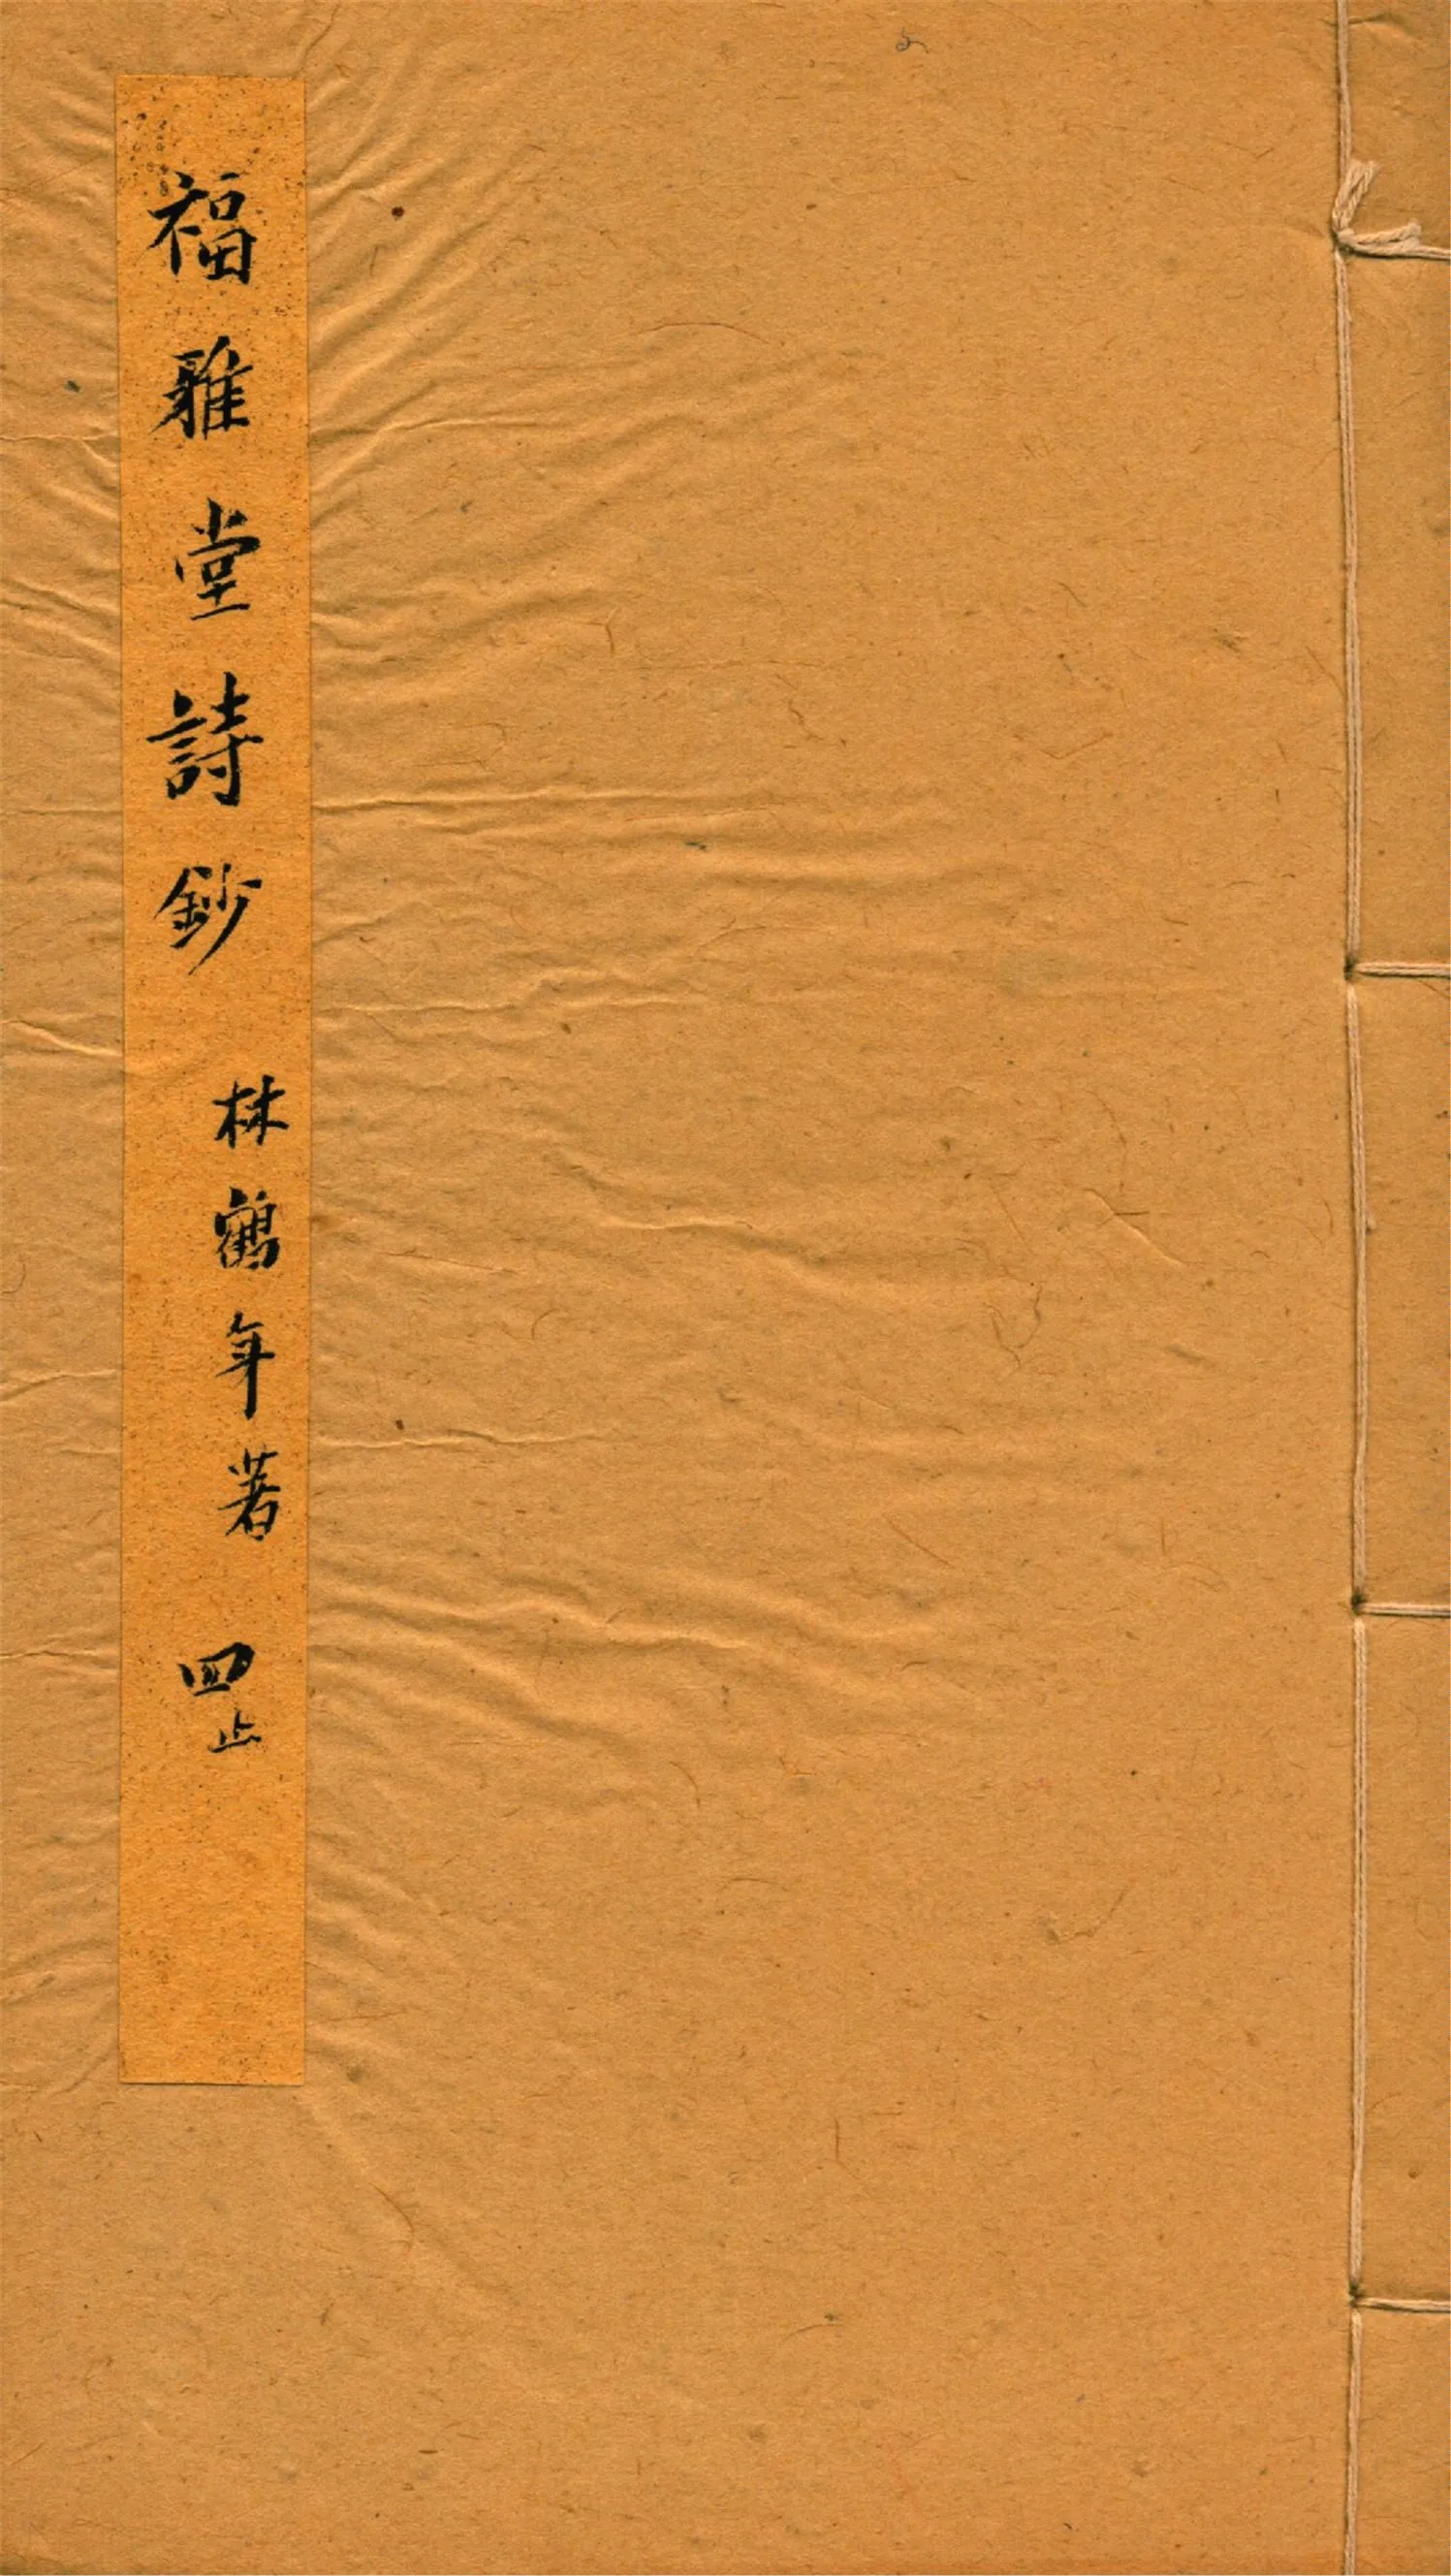 福雅堂詩鈔 林鶴年著 四止